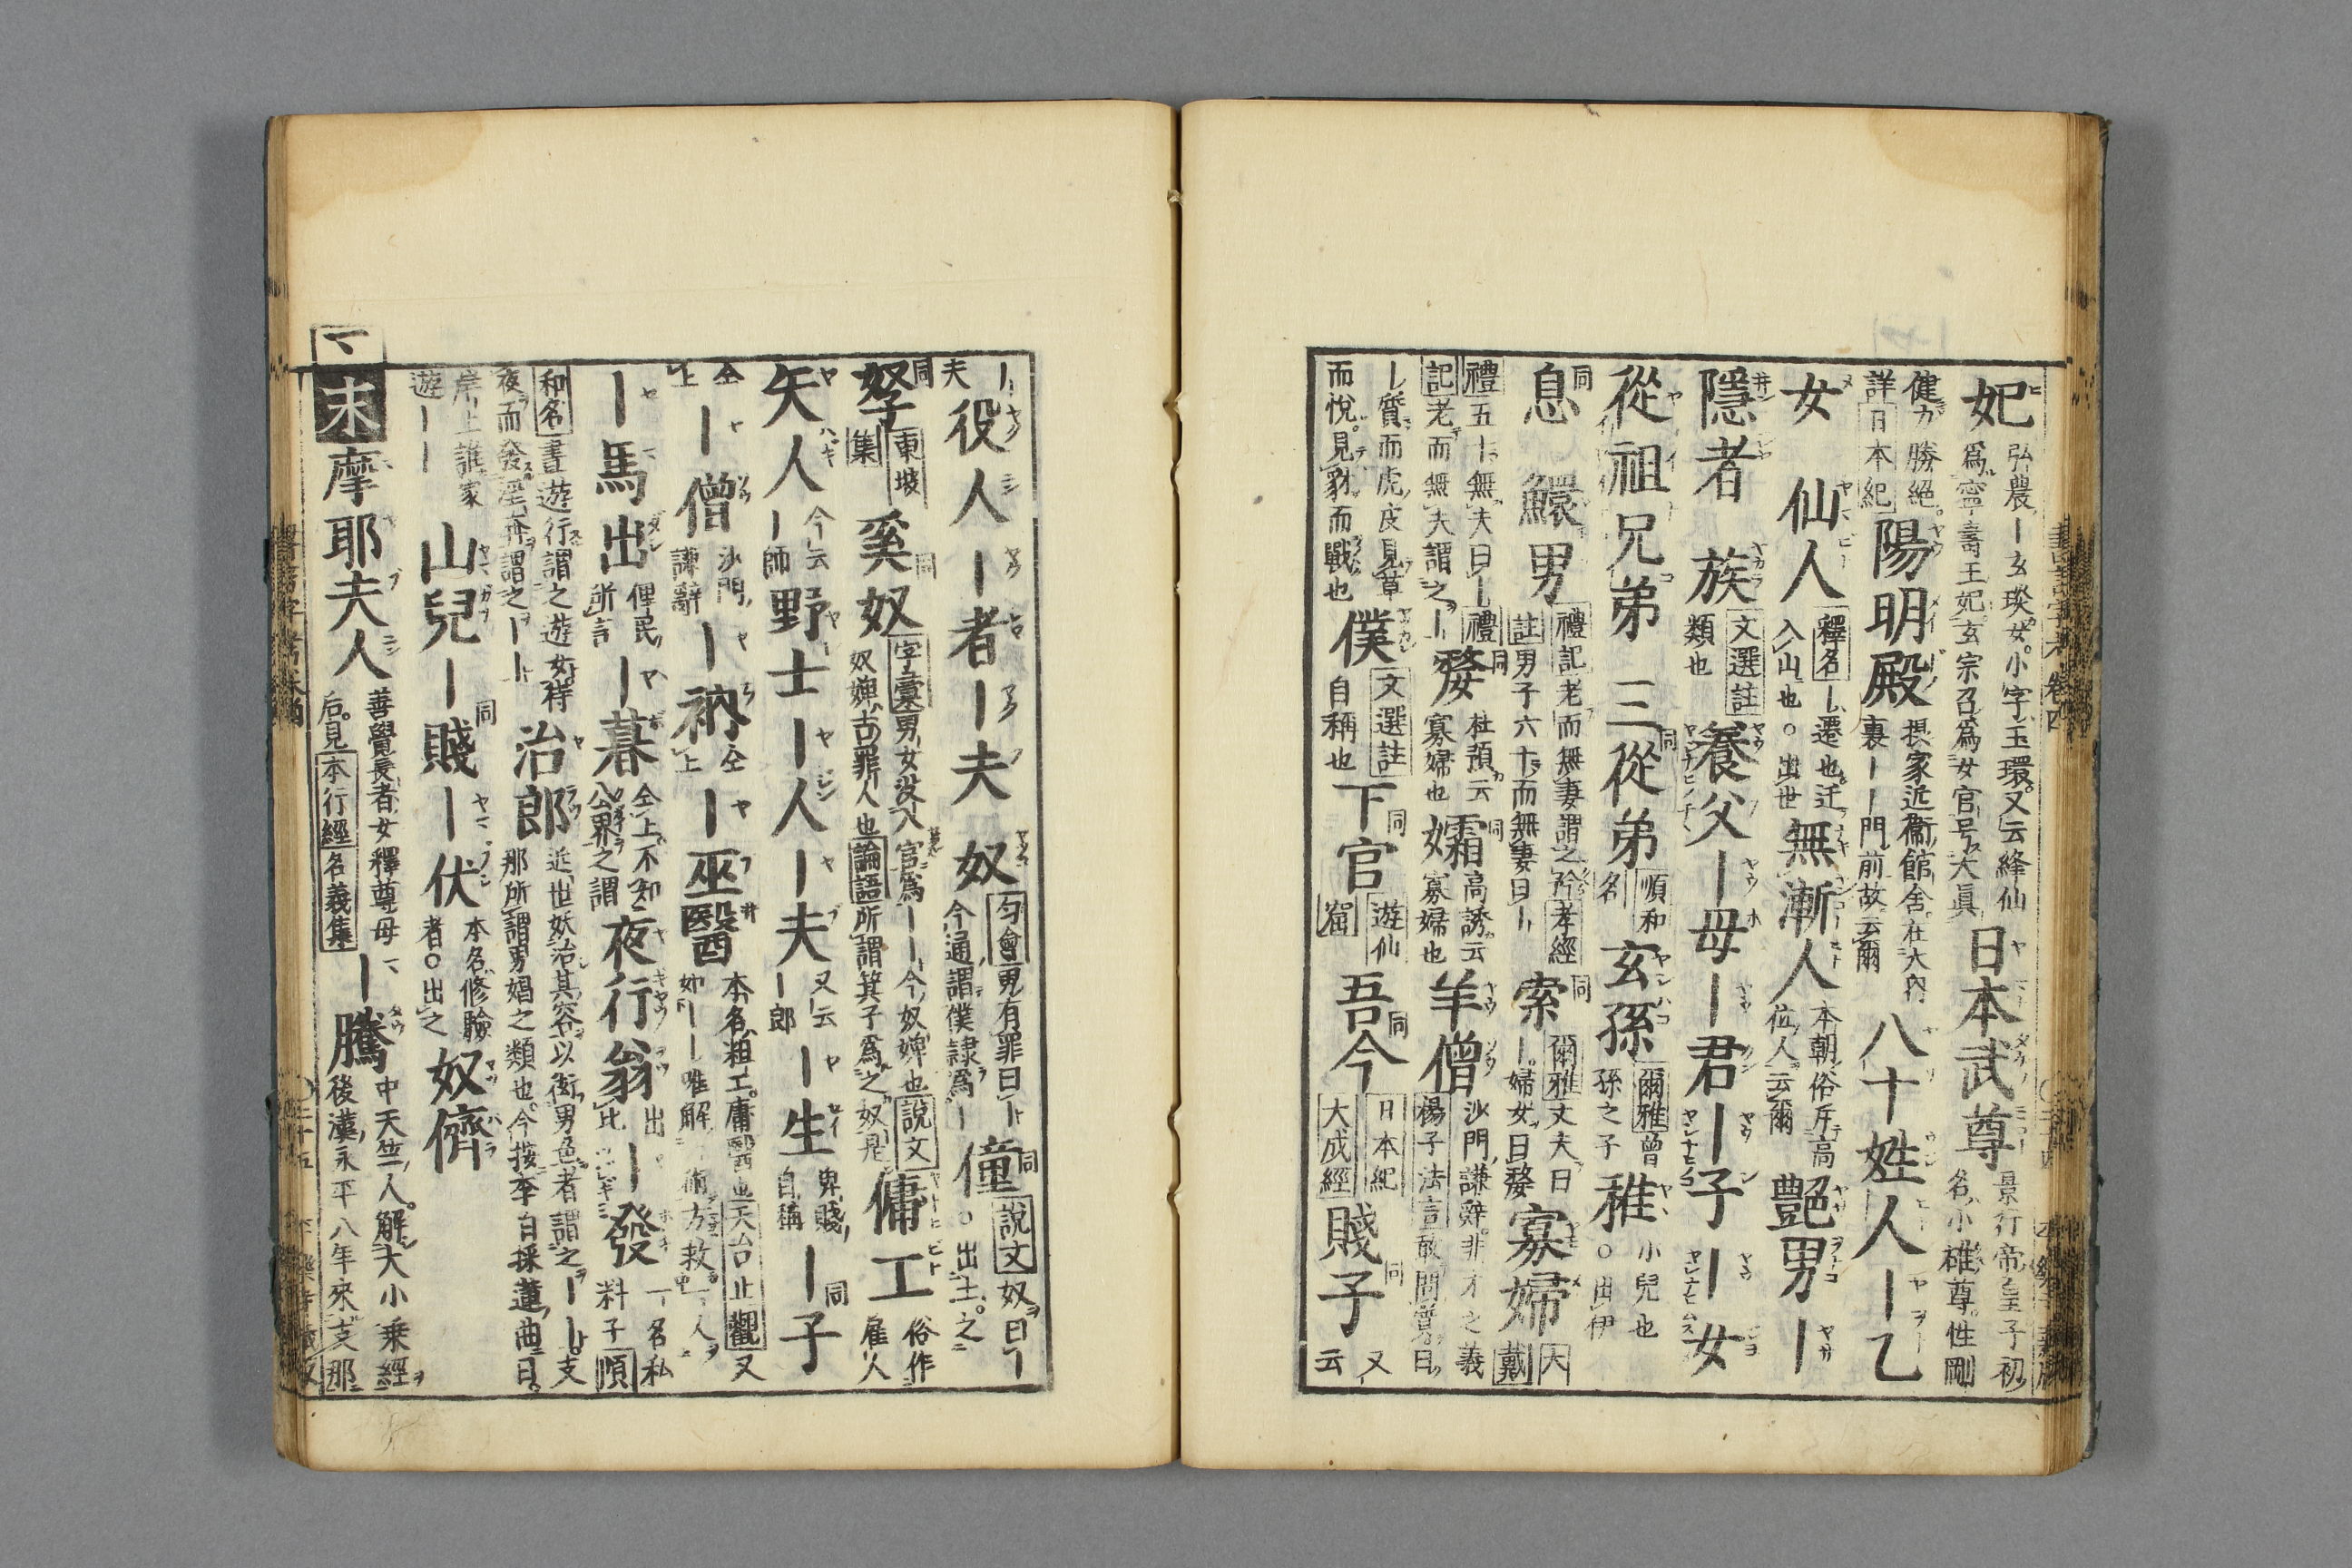 妃 弘農ノ｜玄琰女。小字玉環。又云絳仙
爲寧壽王妃。玄宗召爲女官号大眞 日本武尊 景行帝皇子初
名小碓尊。性剛
健力勝絕。
詳日本紀 陽明殿 摂家近衞館舍。在大內
裏｜｜門前故云爾 八十姓人｜乙
女 仙人 釋名｜遷也。迁
入山也。○出世 無漸人 本朝俗斥高
位人云爾 艷男｜
隱者 族 文選註
類也 養父｜母｜君｜子｜女
從祖兄弟 三從弟 順和
名 玄孫 爾雅曾
孫之子 稚 小兒也
○出伊
息 鰥男 禮記老而無妻謂之矜孝經
註男子六十而無妻曰｜ 索 爾雅丈夫曰
｜。婦女曰嫠 寡婦 大
戴
禮五十無夫曰｜禮
記老而無夫謂之｜ 嫠 杜預云
寡婦也 孀 高誘云
寡婦也 羊僧 沙門謙辭。非才之義
楊子法言敢問質。曰
｜質而虎皮見草
而悅。見豺而戰也 僕 文選註
自稱也 下官 遊仙
窟 吾今 日本紀
大成經 賤子 又
云
｜
夫 役人｜者｜夫 奴 匀會男有罪曰｜
今通謂僕隷爲｜ 僮 說文奴曰｜
○出土之
孥 東坡
集 奚奴 字彙男女沒入官爲｜｜今奴婢也說文
奴婢古罪人也論語所謂箕子爲之奴是 傭工 俗作
雇人
矢人 今云
｜師 野士｜人｜夫 又云
｜郎 ｜生 卑賤
自稱 ｜子
仝
上 ｜僧 沙門
謙辭 ｜衲 仝
上 ｜巫醫 本名粗工。庸醫也天台止觀又
如｜｜唯解一術方救一人
｜馬出 俚民
所言 ｜暮 仝上不知
公界之謂 夜行翁 出
比 ｜發 ｜名私
料子順
和名書遊行謂之遊女待
夜而發淫奔謂之｜｜ 治郎 近世妖治其容以衒男色者謂之｜｜。支
那所謂男娼之類也。今按李白採蓮曲曰。
岸上誰家
遊｜｜ 山兒｜賤｜伏 本名修驗
者○出之 奴儕
マ 末 摩耶夫人 善覺長者女釋尊母
后。見本行經名義集 ｜騰 中天竺人。解大小乘經
後漢永平八年來支那